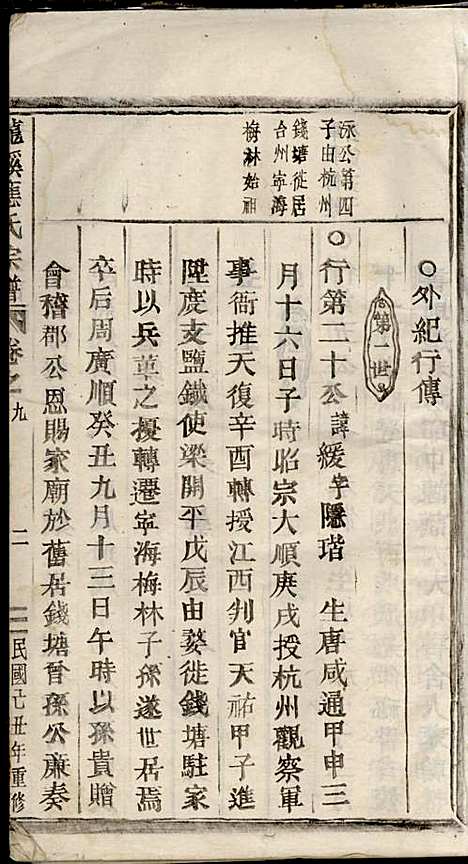 ○外紀行傳
第一世
泳公第四
子由杭州
錢塘徙居
台州寧海
梅林始祖
○行第二十公諱緩字隱瑎 生唐咸通甲申三
月十六日子時昭宗大順庚戌授杭州觀察軍
事衙推天復辛酉轉授江西判官天祐甲子進
陞度支鹽鐵使梁開平戊辰由婺徙錢塘駐家
時以兵革之擾轉遷寧海梅林子孫遂世居焉
卒后周廣順癸丑九月十三日午時以孫貴贈
會稽郡公恩賜家廟於舊居錢塘晉孫公廉奏
龍溪應氏宗譜 卷之九 二 民國己丑年重修